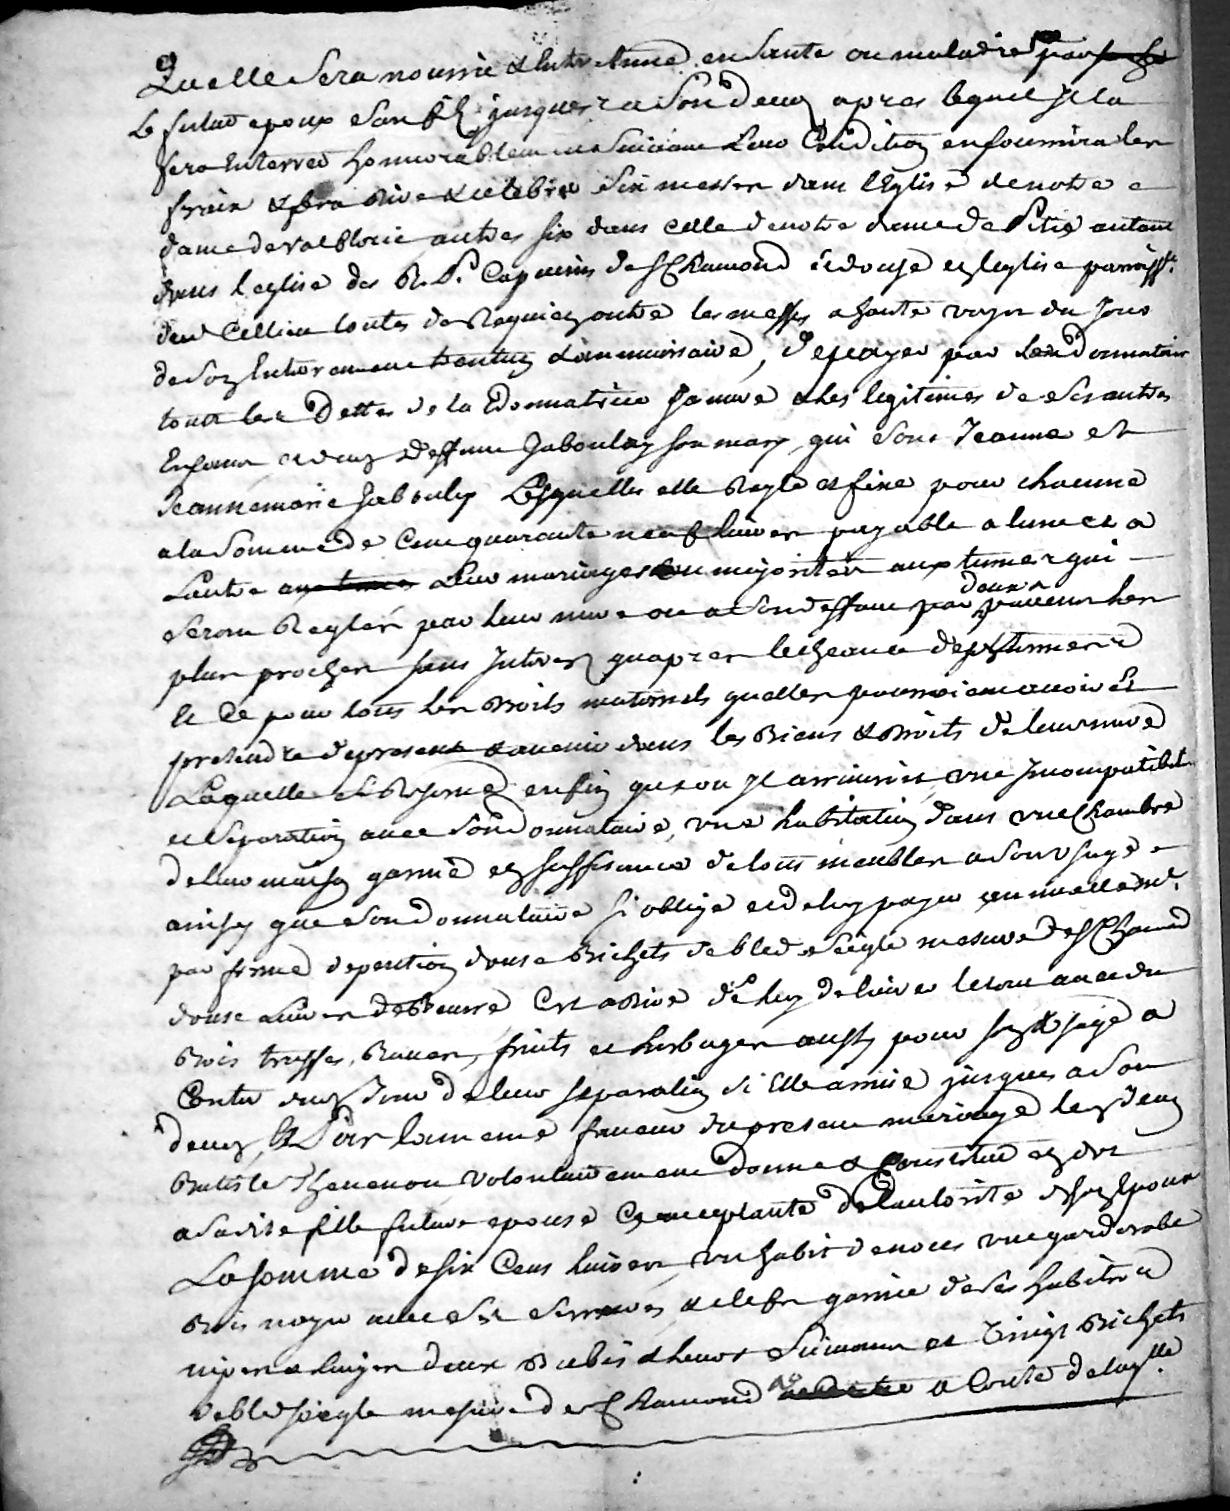 Quelle sera nourrie & entretenue en sante ou maladie par
le futur epoux son fils jusques a son deces apres lequel Il la
fera enterrer honnorablement suivant leur Condition en fournira les
frais & fera dire & celebrer six messes dans l'Eglise de notre
dame de valfleurie autres six dans celle de notre dame de Pitié autant
dans l'eglise des R. Ps. Capucins de St Chamond et douse en l'eglise paroiss.le
dud Cellieu toutes de Requiem outre les messes a haute voyx du Jour
de son Enterrement trentin & anniversaire, de payer par led donnataire
tout les Dettes de la donnatrice sa mere & les legitimes de ses autres
Enfans dud deffunt Jaboulay son mary, qui sont Jeanne et
Jeannemarie Jaboulay lesquelles elle Regle et fixe pour chacune
a la somme de Cent quarante neuf livres payable a lune et a
lautre leur mariages ou majorités aux termes qui
seront Reglés par leur mere ou a son deffaut par deux parens les
plus proches sans Interets quapres lecheance des termes
et Ce pour tous les droits maternels quelles pourroient avoir et
pretendre de present & avenir dans les Biens & droits de leur mere
Laquelle se Reserve enfin au cas ou Il arriveroit une Incompatibilité
et separation avec son donnataire, une habitation dans une Chambre
de leur maison garnie en suffisance de tous meubles a son usage
ainsy que son donnataire s'oblige et de luy payer annuellement
par forme de pention douse Bichets de bled seigle mesure de St Chamond
douse livres de Beurre Cest a dire de luy delivrer le tout avec du
Bois truffes, Raves, fruits et herbages aussy pour son usage a
Conter du Jour de leur separation si Elle arrive jusques a son
deces, Et Par la meme faveur du present mariage led
Batiste Thevenon volontairement donne & Constitue en dot
a sadite fille future epouse Ce acceptante de l'autorité de son Epoux
La somme de six Cens livres un habit de noces une garderobe
Bois noyer avec ses serrures & clefs garnie de ses habits
nipes & linges deux Brebis & leurs suivans et vingt Bichets
de bled seigle mesure de St Chamond a Conte de laq.lle